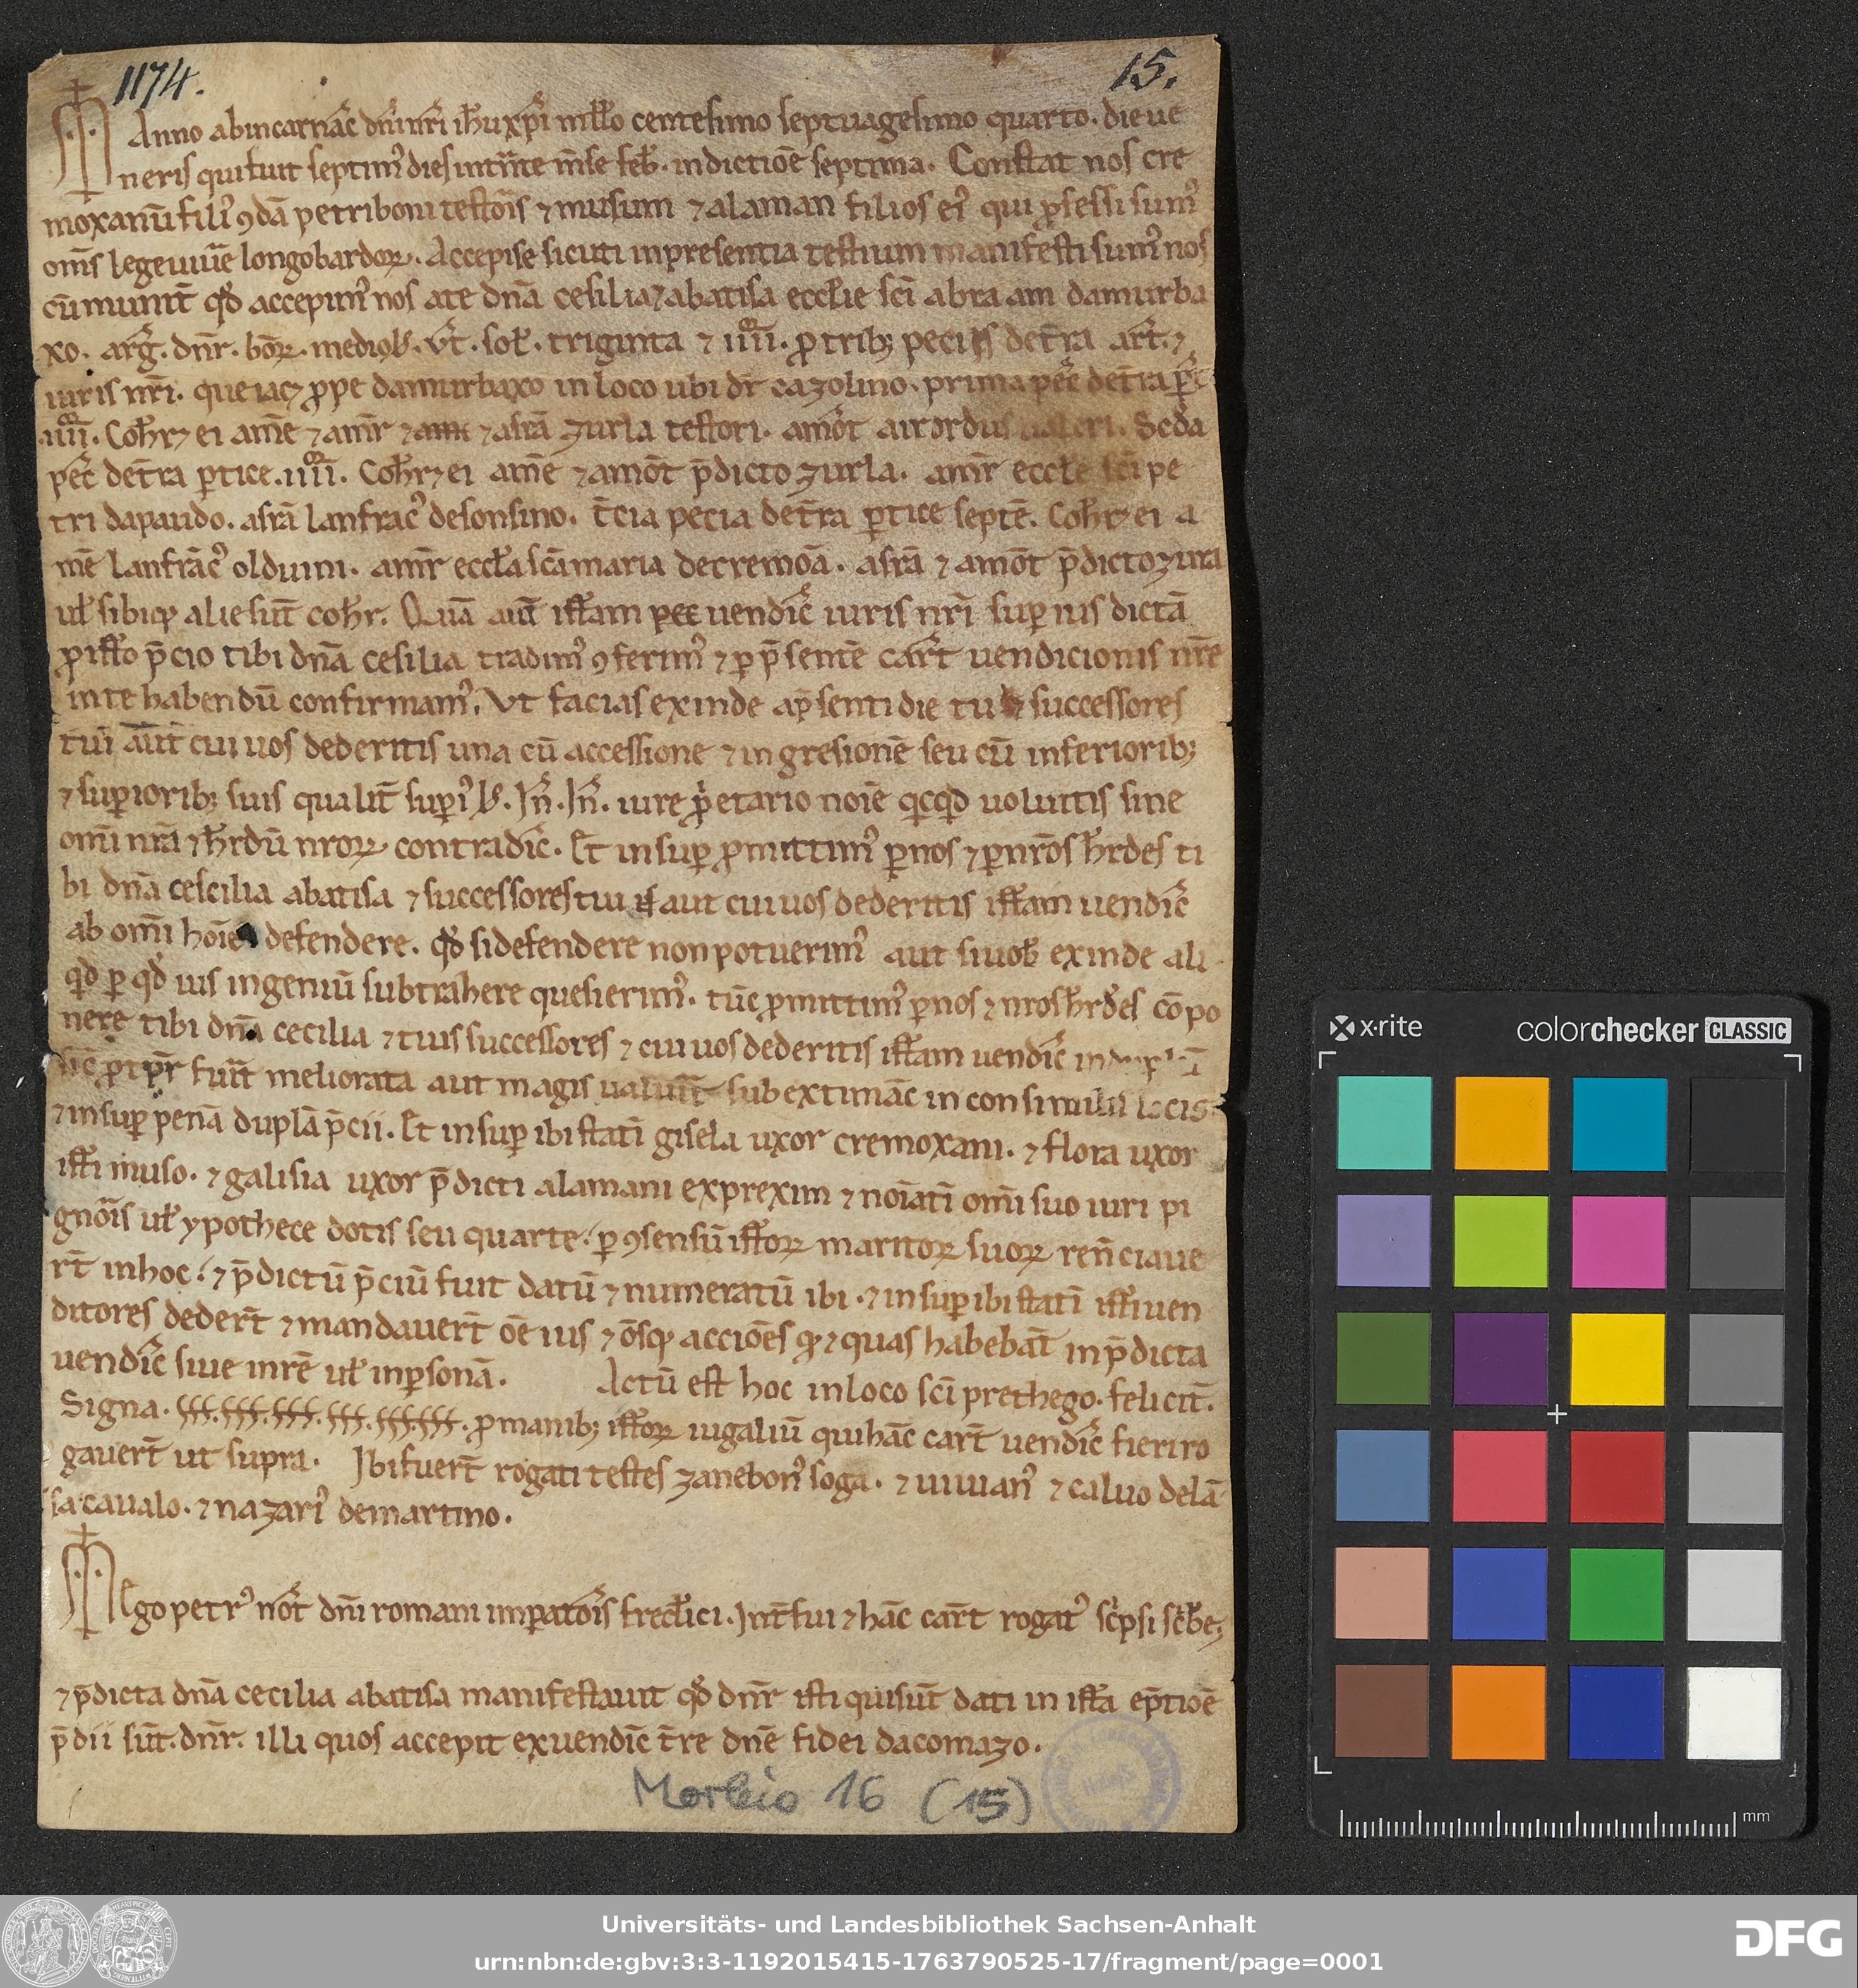 1174. 15.
Anno abincarnac̄ dn̄i nr̄i ih̄u xp̄i mill̄o centesimo septuagesimo quarto. die ue
neris qui fuit septim᾽ dies intrn̄te m̄se feb̄. indictiōe septima. Constat nos cre
moxanū fili᾽ ꝯdā petri boni testōis ⁊ musum ⁊ alaman filios ei᾽ qui ꝓfessi sum᾽
om̄s lege uiuē longobardoꝝ. Accepise sicuti in presentia testium manifesti sum᾽ nos
cūmunit̄ qd̄ accepim᾽ nos a te dn̄a cesilia abatisa eccl̄ie sc̄i abraam damurba
xo. arḡ. dnr̄. bōꝝ. mediol̄. ūt. sol̄. triginta ⁊ iiii. ꝓ trib; peciis det̄ra art̄. ⁊
iuris nr̄i. que iacꝫ ꝓpe damurbaxo in loco ubi dr̄ cazolino. prima pec̄ det̄ra
iiii. Coh̄rꝫ ei am̄e ⁊ amr̄ ⁊ asrā zurla testori. amōt airordus Seda
pec̄ det̄ra ꝑtice. iiii. Coh̄rꝫ ei am̄e ⁊ amōt p̄dicto zurla. amr̄ eccl̄e sc̄i pe
tri dapaudo. asrā lanfrac᾽ desonsino. t̄cia pecia det̄ra ꝑtice septē. Coh̄rꝫ ei a
mē lanfrāc᾽ olduini. amr̄ eccl̄a sc̄a maria decremōa. asrā ⁊ amōt p̄dicto zura
ul̄ sibiqꝫ alie sūt coh̄r. Quā aut̄ istam uendic̄ iuris nr̄i suꝑius dictā
ꝓ isto p̄cio tibi dn̄a cesilia tradim᾽ ꝯferim᾽ ⁊ ꝑ p̄sentē cart̄ uendicionis nr̄e
in te habendū confirmam᾽. Ut facias exinde ap̄senti die tu ⁊ successores
tui aut cui uos dederitis una cū accessione ⁊ ingresionē seu cū inferiorib;
⁊ suꝑiorib; suis qualit̄ suꝑi᾽ l̄. Jn̄. Jn̄. iure ꝓetario noīe qcqd uoluitis sine
omī nrā ⁊ h̄rdū nroꝝ contradic̄. Et insuꝑ ꝓmittim᾽ ꝑ nos ⁊ ꝑ nrōs h̄rdes ti
bi dn̄a cescilia abatisa ⁊ successores tui aut cui uos dederitis istam uendic̄
ab omī hoīe defendere. qd̄ si defendere non potuerim᾽ aut si uob̄ exinde ali
qd ꝑ qd ius ingeniū subtrahere quesierim᾽. tūc ꝓmittim᾽ ꝑ nos ⁊ nros h̄rdes cōpo
nere tibi dn̄a cecilia ⁊ tuis successores ⁊ cui uos dederitis istam uendic̄
sic̄ ꝓ tp̄r fuīt meliorata aut magis ualuīt sub extimāc in consimilis locis
⁊ insuꝑ penā duplā p̄cii. Et insuꝑ ibi statī gisela uxor cremoxani. ⁊ flora uxor
isti muso. ⁊ galisia uxor p̄dicti alamani exprexim ⁊ noīatī omī suo iuri pi
gnōis ul̄ ypothece dotis seu quarte. ꝑ ꝯsensū istoꝝ maritoꝝ suoꝝ ren̄ciaue
rt̄ in hoc. ⁊ p̄dictū p̄ciū fuit datū ⁊ numeratū ibi. ⁊ insuꝑ ibi statī isti uen
ditores dedert̄ ⁊ mandauert̄ ōe ius ⁊ ōsqꝫ acciōēs qꝫ ⁊ quas habebāt in p̄dicta
uendic̄ siue in rē ul̄ in ꝑsonā. Actū est hoc in loco sc̄i prethego. felicit̄.
Signa. ꝓ manib; istoꝝ iugaliū qui hāc cart̄ uendic̄ fieri ro
gauert̄ ut supra. Jbi fuert̄ rogati testes zanebon᾽ soga. ⁊ uiuian᾽ ⁊ caluo delā
sa caualo. ⁊ nazari᾽ demartino.
Ego petr᾽ not̄ dn̄i romani imꝑatōis fredīci. Jnt̄fui ⁊ hāc cart̄ rogat᾽ sc̄psi
⁊ p̄dicta dn̄a cecilia abatisa manifestauit qd̄ dnr̄ isti qui sūt dati in ista ep̄tiōē
p̄dii sūt. dnr̄. illi quos accepit ex uendic̄ t̄re dn̄e fidei dacomazo.
Morbio 16 (15)
x·rite colorchecker CLASSIC
mm
Universitäts- und Landesbibliothek Sachsen-Anhalt
urn:nbn:de:gbv:3:3-1192015415-1763790525-17/fragment/page=0001
DFG